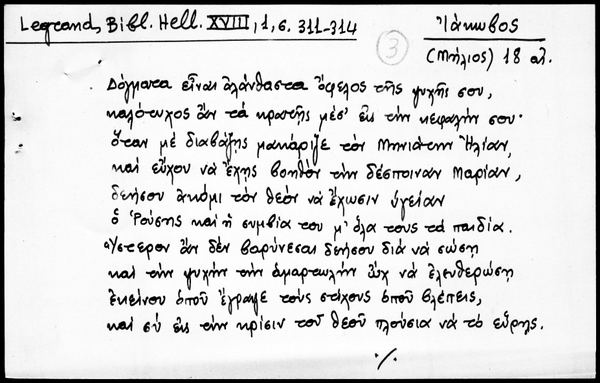 Legrand, Bibl. Hell. XVIII, 1, σ. 311-314
3
Ἰάκωβος
(Μήλιος) 18 αἰ.
Δόγματα εἶναι ἀλάνθαστα ὄφελος τῆς ψυχῆς σου,
καλότυχος ἂν τὰ κρατῇς μέσ' εἰς τὴν κεφαλήν σου·
ὅταν μὲ διαβάζῃς μακάριζε τὸν Μηνιάτην Ἠλίαν,
καὶ εὔχου νὰ ἔχῃς βοηθὸν τὴν δέσποιναν Μαρίαν,
δεήσου ἀκόμι τὸν θεὸν νὰ ἔχωσιν ὑγείαν
ὁ Ῥούσης καὶ ἡ συμβία του μ' ὅλα τους τὰ παιδία.
Ὕστερον ἂν δὲν βαρύνεσαι δεήσου διὰ νὰ σώσῃ
καὶ τὴν ψυχὴν τὴν ἁμαρτωλὴν ἂχ νὰ ἐλευθερώσῃ
ἐκείνου ὁποῦ ἔγραψε τοὺς στίχους ὁποῦ βλέπεις,
καὶ σὺ εἰς τὴν κρίσιν τοῦ θεοῦ πλούσια νὰ τὸ εὕρῃς.
·/.